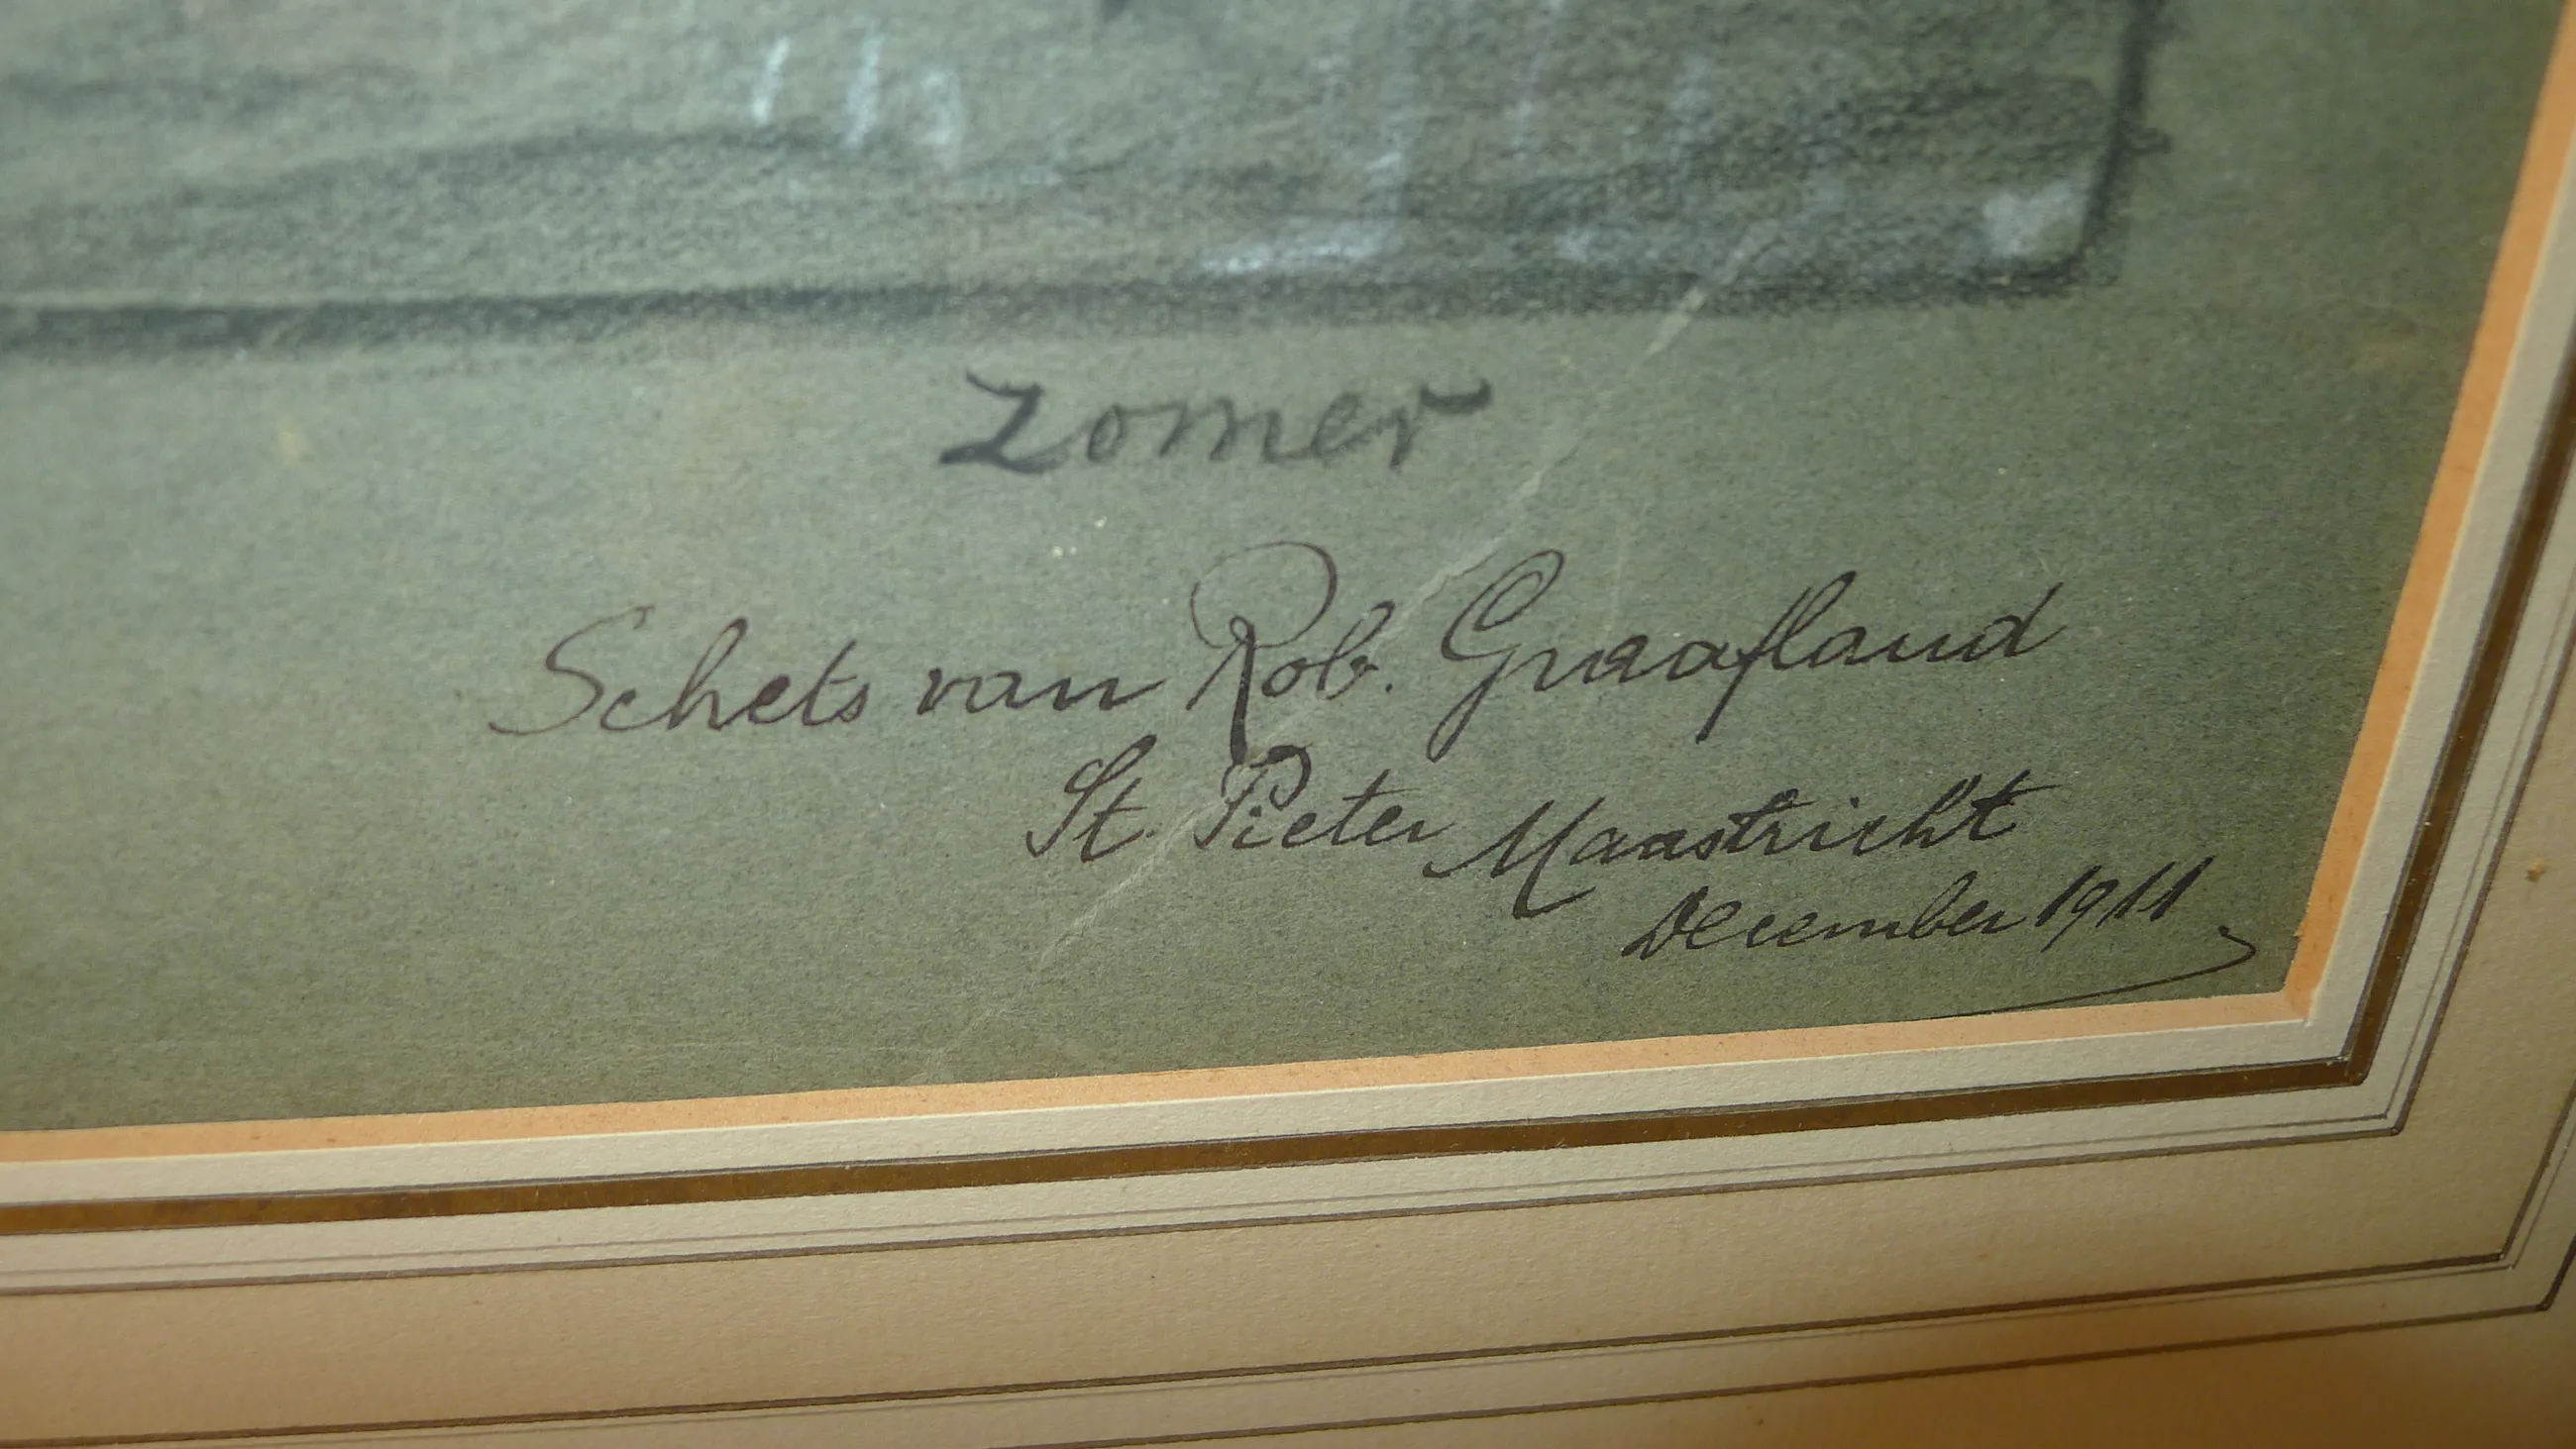 zomer
Schets van Rob. Graafland
St. Pieter Maastricht
December 1911